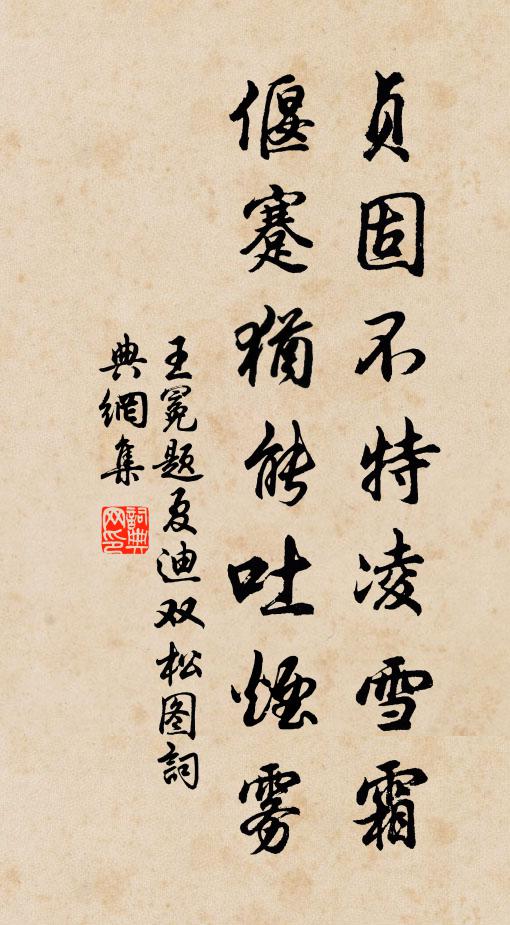 贞固不特凌雪霜
偃蹇犹能吐煙雾
王冕题夏迪双松图詞
典網集
詞典网印